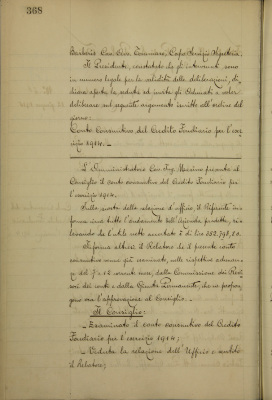 368
Barberis Cav. Uff. Tommaso, Capo Servizio Segreteria.
Il Presidente, constatato che gli intervenuti sono
in numero legale per la validità delle deliberazioni, di-
chiara aperta la seduta ed invita gli Adunati a voler
deliberare sul seguente argomento iscritto all'ordine del
giorno:
Conto Consuntivo del Credito Fondiario per l'eser-
cizio 1914. –
L'Amministratore Cav. Ing. Massimo presenta al
Consiglio il conto consuntivo del Credito Fondiario per
l'esercizio 1914.
Sulla scorta della relazione d'ufficio, il Riferente in-
forma circa tutto l'andamento dell'Azienda predetta, ri-
levando che l'utile netto accertato è di Lire 352.798,20.
Informa altresì il Relatore che il presente conto
consuntivo venne già esaminato, nelle rispettive adunan-
ze del 7 e 12 corrente mese, dalla Commissione dei Revi-
sori dei conti e dalla Giunta Permanente, che ne propon-
gono ora l'approvazione al Consiglio. –
Il Consiglio:
– Esaminato il conto consuntivo del Credito
Fondiario per l'esercizio 1914;
– Veduta la relazione dell'Ufficio e sentito
il Relatore;